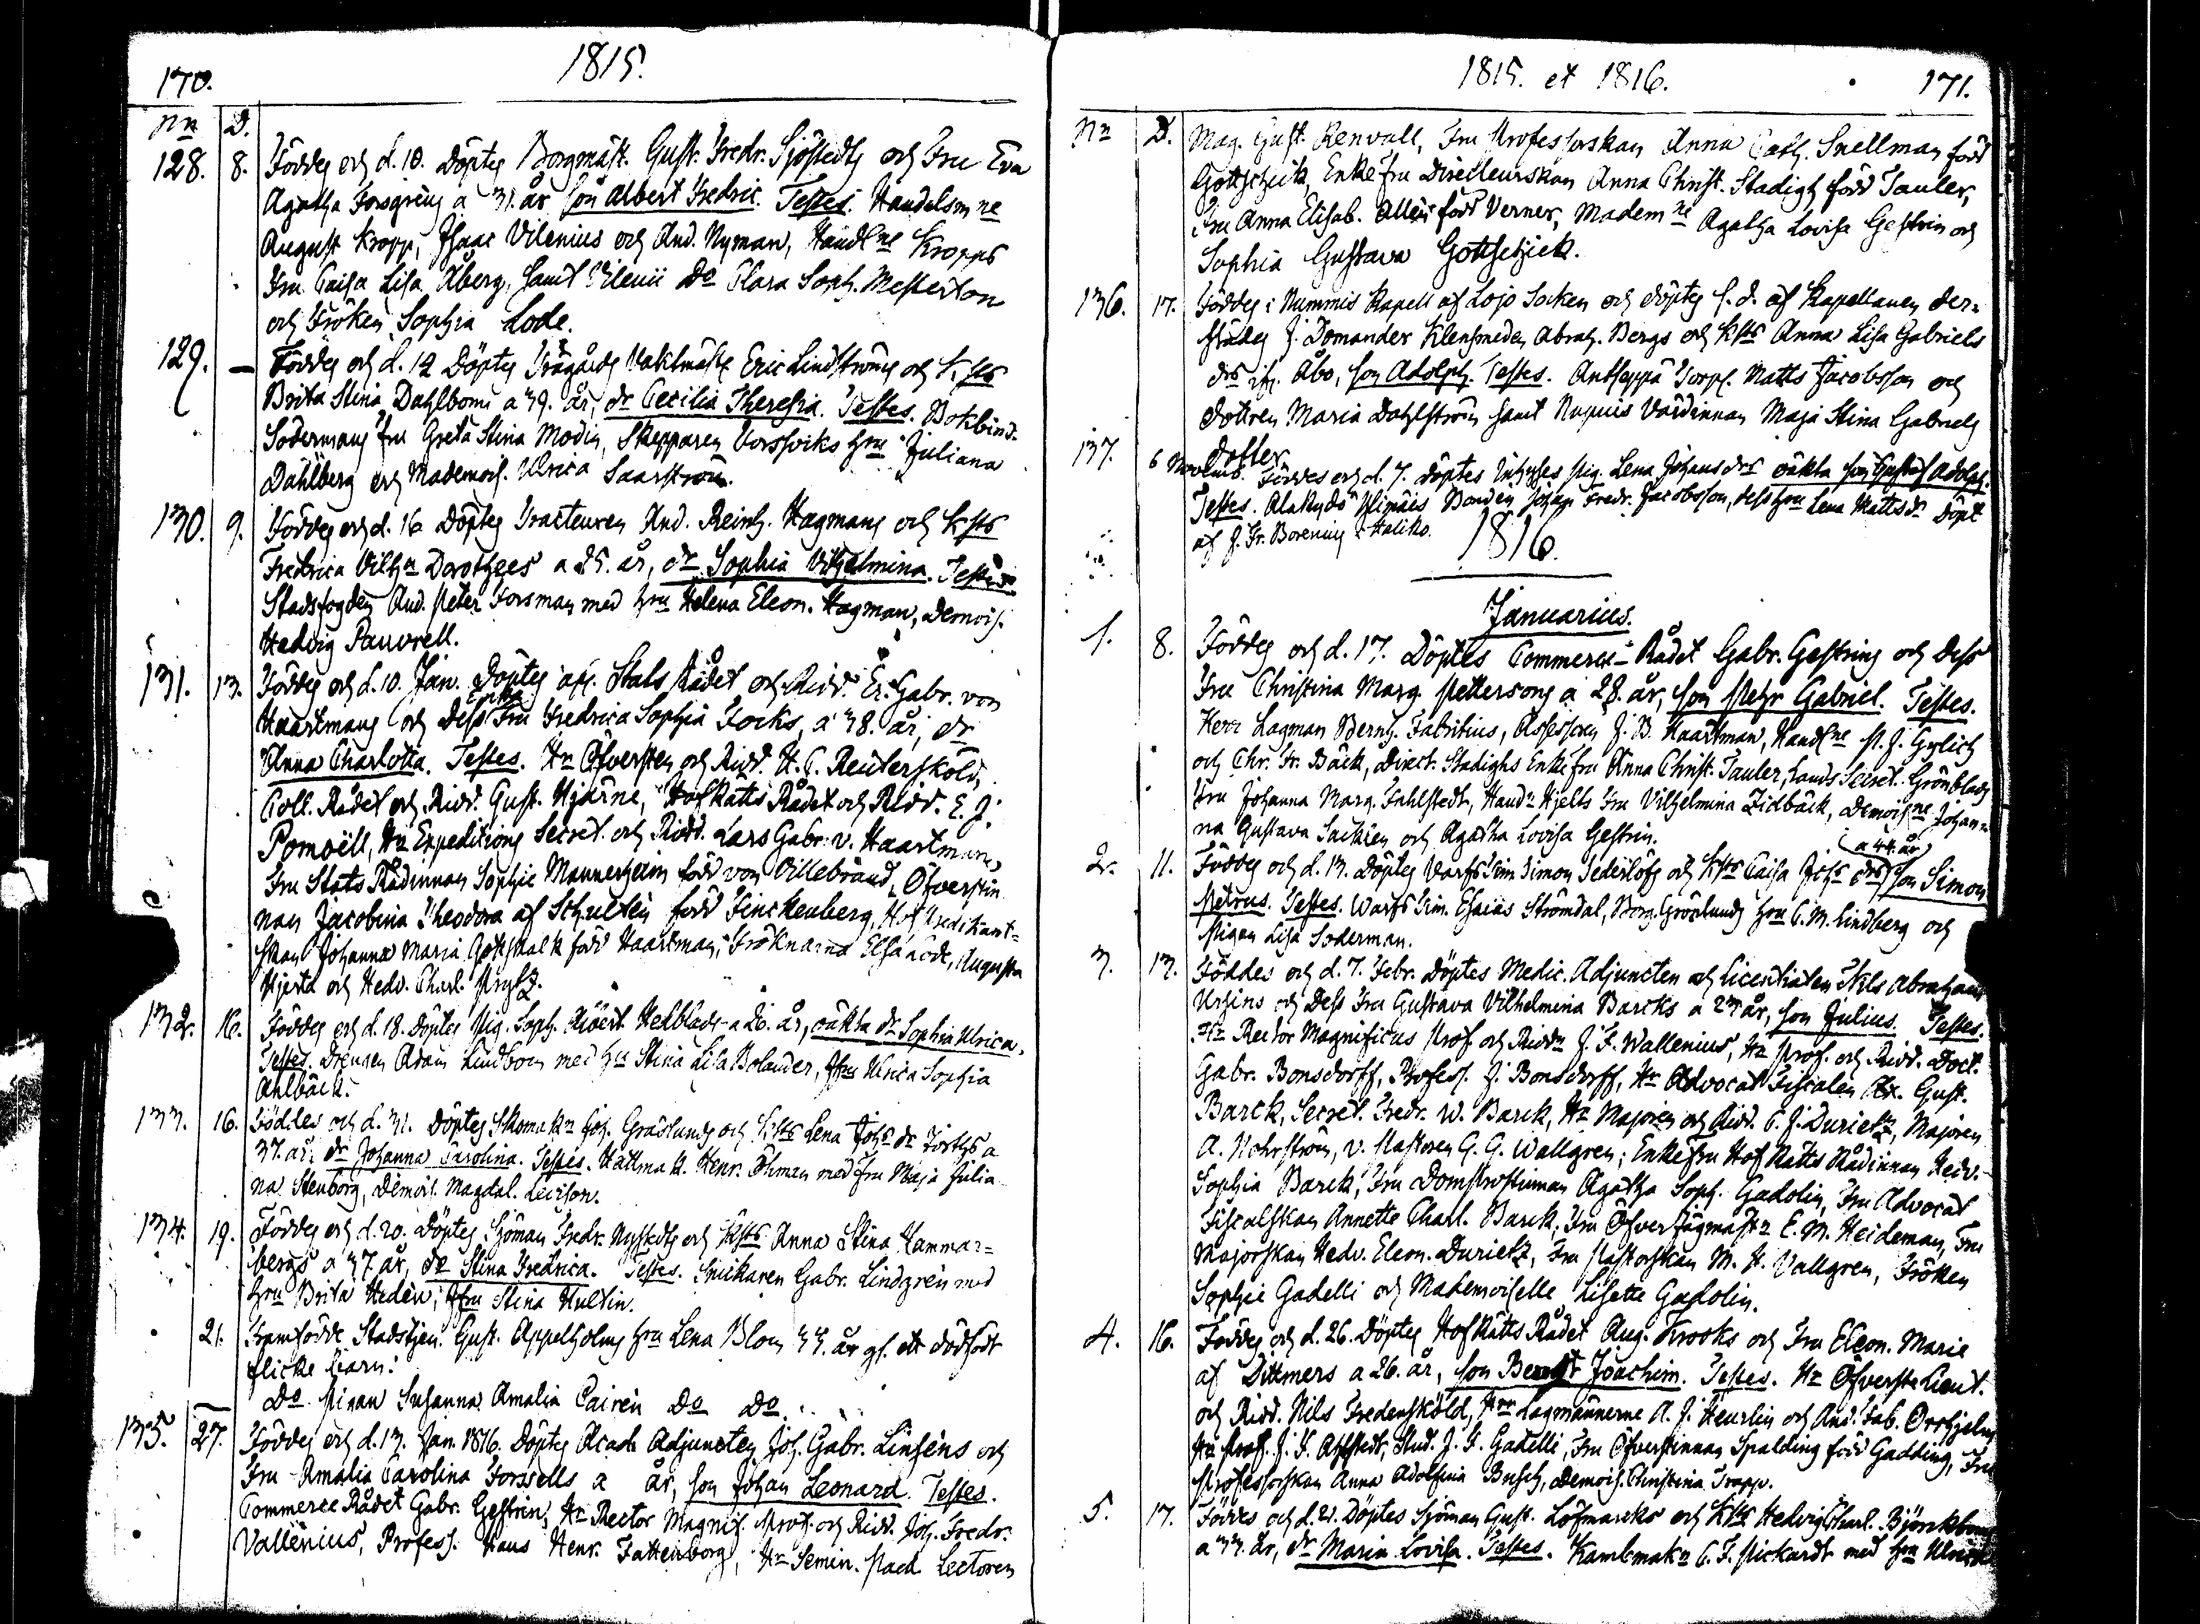 170.
1815.
Nn D.
128. 8. Föddes och d. 10. Döptes Borgmäst. Gust. Fredr. Sjöstedts och Fru Eva
Agatha Forsgrens a 31. år son Albert Fredric. Testes. Handelsm ne
August Kropp, Isaac Vilenius och And. Nyman, Handl ne Kropps
Fru Caisa Lisa Åberg, samt Vilenii Do Clara Soph. Mesterton
och Fröken Sophia Lode.
129. — Föddes och d. 12 Döptes Trägårds Vaktmäst. Eric Lindströms och h. sts
Brita Stina Dahlboms a 39. år, dr Cecilia Theresia. Testes. Bokbind.
Södermans fru Greta Stina Modin, Skepparen hru Juliana
Dahlberg och Mademois. Ulrica Saarström.
130. 9. Föddes och d. 16 Döptes Tracteuren And. Reinh. Hagmans och hsts
Fredrica Vilhna Dorothees a 25. år, dr Sophia Vilhelmina. Testes.
Stadsfogden And. Peter Forsman med hru Helena Eleon. Hagman, Demois.
Hedvig Pauvrell.
131. 13. Föddes och d. 10. Jan. Döptes afl. Stats Rådet och Ridd. Er. Gabr. von
Haartmans och Dess Enka Fru Fredrica Sophia Focks, a 38. år, dr
Anna Charlotta. Testes. Hr Öfversten och Ridd. H. C. Reuterskold,
Coll. Rådet och Ridd. Gust. Hjärne, HofRätts Rådet och Ridd. E. J.
Pomoëll, Hr Expeditions Secret. och Ridd. Lars Gabr. v. Haartman,
Fru Stats Rådinnan Sophie Mannerheim född von Villebrand, Öfverstin
nan Jacobina Theodora af Schultén född Finckenberg, Hof Predikant=
skan Johanna Maria Gottskalk född Haartman, Fröknarna Elsa Lode, Augusta
Hjerta och Hedv. Charl. Prytz.
132. 16. Föddes och d. 18. Döptes Pig. Soph. Hedblads a 20. år, oäkta dr Sophia Ulrica.
Testes. Drengen Adam Lindbom med hru Stina Lisa Bolander, Jfru Ulrica Sophia
Ahlbäck.
133. 16. Föddes och d. 31. Döptes Skomakn Joh. Gräslunds och hsts Lena Johs dr a
37. år, dr Johanna Carolina. Testes. Hattmak. Henr. Öhman med fru Maja Julia
na Stenborg, Demois. Magdal. Levison.
134. 19. Föddes och d. 20. Döptes Sjöman Fredr. Nystedts och hsts Anna Stina Hammar=
bergs a 37 år, dr Stina Fredrica. Testes. Snickaren Gabr. Lindgren med
hru Brita Hedén, Jfru Stina Hultin.
21. Framfödde Stadstjen. Gust. Appelholms hru Lena Blom 33. år gl. ett dödfödt
flicke barn.
Do Pigan Susanna Amalia Cairén Do Do.
135. 27. Föddes och d. 13. Jan. 1816. Döptes Acad. Adjuncten Joh. Gabr. Linséns och
Fru Amalia Carolina Forssells a år, son Johan Leonard. Testes.
Commerce Rådet Gabr. Gestrin, Hr Rector Magnif. Prof. och Ridd. Joh. Fredr.
Vallenius, Profess. Hans Henr. Fattenborg, Hr Semin. Paed. Lectoren
1815. et 1816.
171.
Nn D. Mag. Gust. Renvall, Fru Professorskan Anna Cath. Snellman född
Gottschick, Enkefru Directeurskan Anna Christ. Stadigh född Tauler,
Fru Anna Elisab. Allén född Verner, Madem ne Agatha Lovisa Gestrin och
Sophia Gustava Gottschick.
136. 17. Föddes i Nummis Kapell af Lojo Socken och döptes s. d. af Kapellanen der=
städes J. Domander Klensmeden Abrah. Bergs och hsts Anna Lisa Gabriels
drs ifr. Åbo, son Adolph. Testes. Torp. Matts Jacobsson och
dottren Maria Dahlström samt Värdinnan Maja Stina Gabriels
dotter.
137. 6 Novemb. Föddes och d. 7. döptes Pig. Lena Johans drs oäkta son Gustaf Adolph.
Testes. Bonden Johan Fredr. Jacobsson, dess hru Lena Matts dr Döpt
af J. Fr. Borenius i Haliko.
1816.
Januarius.
1. 8. Föddes och d. 17. Döptes Commerce-Rådet Gabr. Gestrins och Dess
Fru Christina Marg. Pettersons a 28. år, son Pehr Gabriel. Testes.
Herr Lagman Bernh. Fabritius, Assessoren J. B. Haartman, Handl ne P. J. Gylich
och Chr. Fr. Bäck, Direct. Stadighs Enkefru Anna Christ. Tauler, Lands Secret. Grönblads
Fru Johanna Marg. Fahlstedt, Handn Hjelts Fru Vilhelmina Zidbäck, Demois ne Johan=
na Gustava Sacklén och Agatha Lovisa Gestrin.
(a 44. år)
2. 11. Föddes och d. 13. Döptes Varfs Tim. Simon Sederlöfs och hsts Caisa Johs drs son Simon
Petrus. Testes. Warfs Tim. Esaias Strömdal, Borg. Gröslunds hru C. M. Lindberg och
Pigan Lisa Söderman.
3. 13. Föddes och d. 7. Febr. Döptes Medic. Adjuncten och Licentiaten Nils Abraham
Ursins och Dess Fru Gustava Vilhelmina Barcks a 23 år, son Julius. Testes.
Hr Rector Magnificus Prof. och Riddn J. F. Wallenius, Hr Prof. och Ridd. Doct.
Gabr. Bonsdorff, Profess. J. Bonsdorff, Hr Advocat Fiscalen Ax. Gust.
Barck, Secret. Fredr. W. Barck, Hr Majoren och Ridd. C. J. Durietz, Majoren
A. Nohrström, v. Pastoren G. G. Wallgren; Enkefru Hof Rätts Rådinnan Hedv.
Sophia Barck, Fru Domprostinnan Agatha Soph. Gadolin, Fru Advocat
Fiscalskan Annette Charl. Barck, Fru Öfverjägmästn E. M. Heideman, Fru
Majorskan Hedv. Eleon. Durietz, Fru Pastorskan M. H. Vallgren, Fröken
Sophie Gadelli och Mademoiselle Lisette Gadolin.
4. 16. Föddes och d. 26. Döptes HofRätts Rådet Aug. Krooks och Fru Eleon. Marie
af Dittmers a 26. år, son Bengt Joachim. Testes. Hr Öfverste Lieut.
och Ridd. Nils Fredensköld, Hrr Lagmännerne A. J. Heurlin och And. Fab. Orrhjelm,
Hr Prof. J. F. Ahlstedt, Stud. J. F. Gadelli, Fru Öfverstinnan Spalding född Gadding, Fru
Professorskan Anna Adolfina Busch, Demois. Christina Trapp.
5. 17. Föddes och d. 21. Döptes Sjöman Gust. Löfmarcks och hsts Hedvig Charl. Björkbom
a 33. år, dr Maria Lovisa. Testes. Kambmakn C. F. Pickardt med hru Ulrica